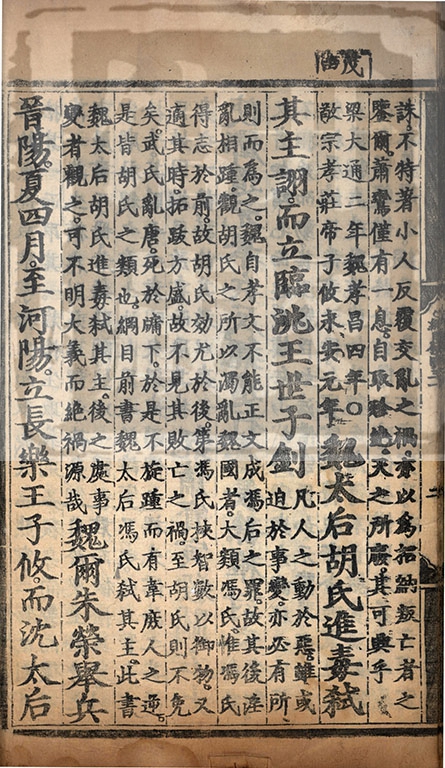 誅不特著小人反覆交亂之禍亦以為招納叛亡者之
鑒爾蕭鸞僅有一息自取殄絶天之所廢其可興乎
梁大通二年魏孝昌四年〇
敬宗孝莊帝子攸永安元年
魏太后胡氏進毒弑
其主詡而立臨洮王世子釗
凡人之動於惡雖或
迫於事變亦必有所
則而為之魏自孝文不能正文成馮后之罪故其後淫
亂相踵觀胡氏之所以濁亂魏國者大類馮氏惟馮氏
得志於前故胡氏效尤於後第馮氏挾智數以御物又
適其時拓跋方盛故不見其敗亡之禍至胡氏則不免
矣武氏亂唐死於牖下於是不旋踵而有韋庶人之逆
是皆胡氏之類也綱目前書魏太后馮氏弑其主此書
魏太后胡氏進毒弑其主後之處事
變者觀之可不明大義而絶禍源哉
魏爾朱榮舉兵
晉陽夏四月至河陽立長樂王子攸而沈太后